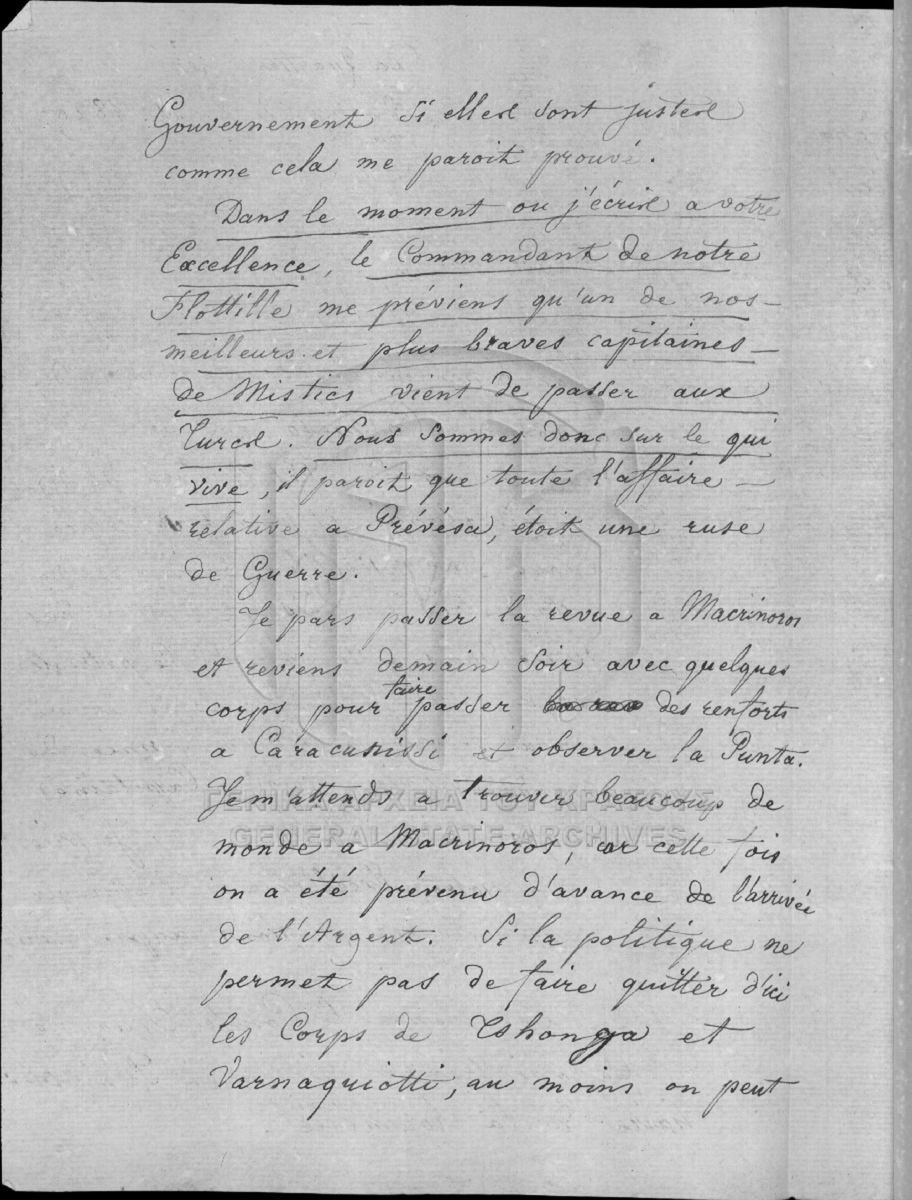 Gouvernement si elles sont justes
comme cela me paroit prouvé.
Dans le moment ou j'écris a votre
Excellence, le Commandant de notre
Flottille me préviens qu'un de nos
meilleurs et plus braves capitaines
de Mistics vient de passer aux
Turcs. Nous sommes donc sur le qui
vive, il paroit que toute l'affaire
relative a Prévésa, étoit une ruse
de Guerre.
Je pars passer la revue a Macrinoros
et reviens demain soir avec quelques
corps pour faire passer des renforts
a Caracunissi et observer la Punta.
Je m'attends a trouver beaucoup de
ΓΕΝΙΚΑ ΑΡΧΕΙΑ ΤΟΥ ΚΡΑΤΟΥΣ
GENERAL STATE ARCHIVES
monde a Macrinoros, car cette fois
on a été prévenu d'avance de l'arrivée
de l'Argent. Si la politique ne
permet pas de faire quitter d'ici
les Corps de Tshonga et
Varnaquiotti, au moins on peut